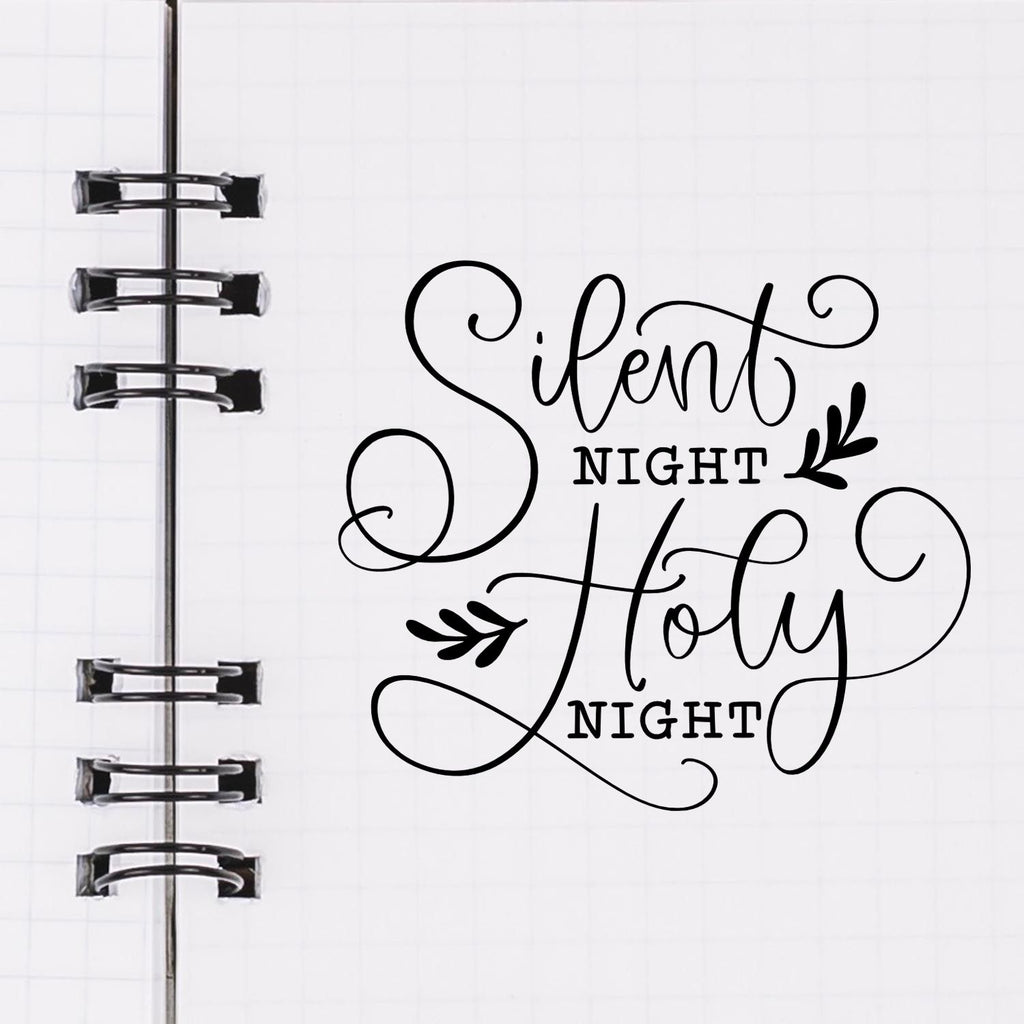 Silent
NIGHT
Holy
NIGHT